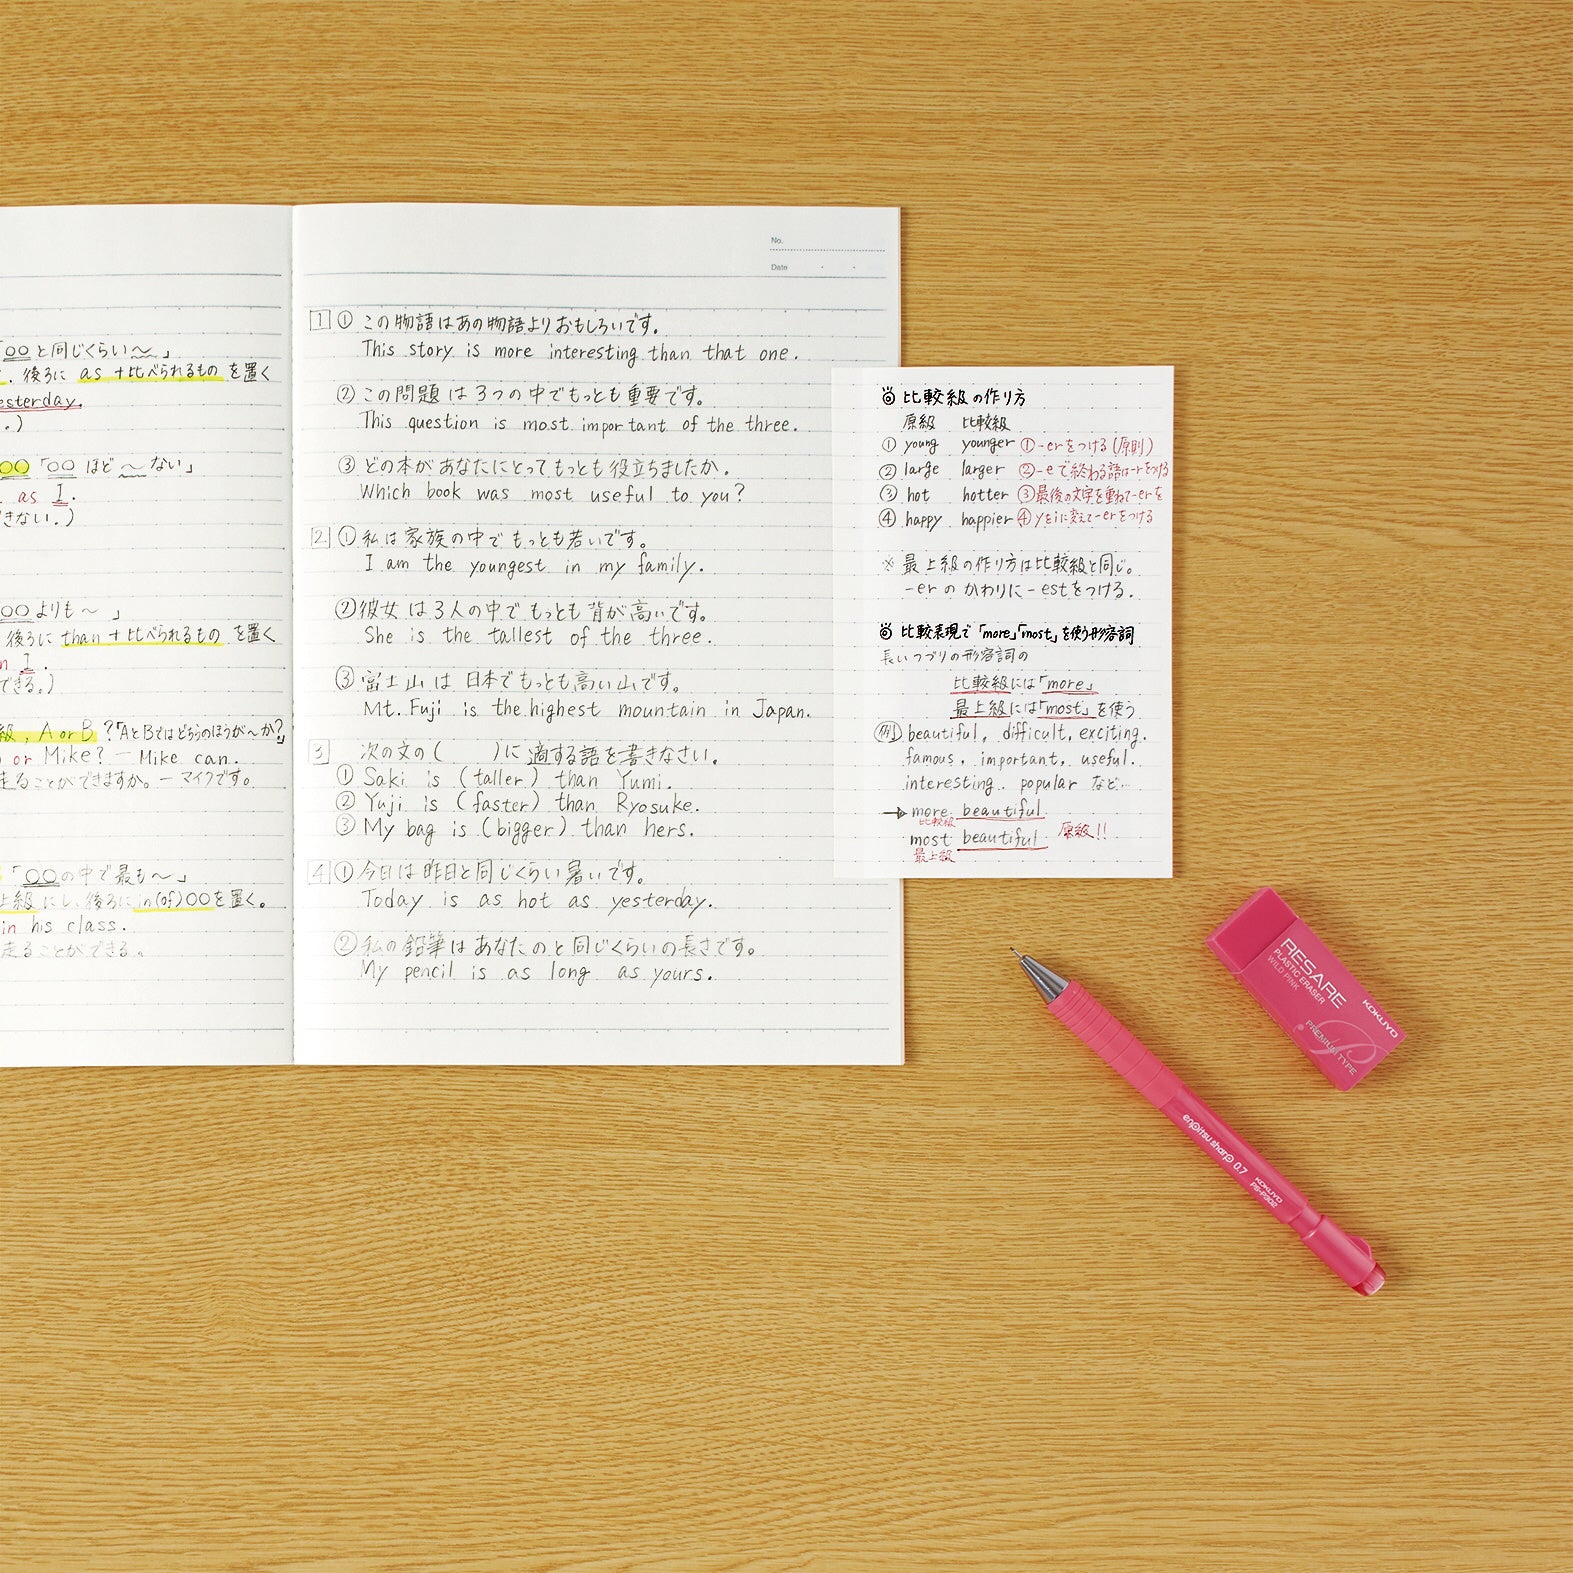 「○○と同じくらい〜」
、後ろに as +比べられるもの を置く
esterday.
.)
○○「○○ ほど 〜 ない」
as I.
きない.)
○○よりも〜 」
後ろに than +比べられるもの を置く
n I.
できる。)
級, A or B ?「AとBではどちらのほうが〜か?」
or Mike? — Mike can.
走ることができますか。— マイクです。
「○○の中で最も〜」
上級 にし、後ろに in(of)○○を置く。
in his class.
走ることができる。
No.
Date
1 ① この物語はあの物語よりおもしろいです。
This story is more interesting than that one.
② この問題は3つの中でもっとも重要です。
This question is most important of the three.
③ どの本があなたにとってもっとも役立ちましたか。
Which book was most useful to you?
2 ① 私は家族の中でもっとも若いです。
I am the youngest in my family.
② 彼女は3人の中でもっとも背が高いです。
She is the tallest of the three.
③ 富士山は日本でもっとも高い山です。
Mt. Fuji is the highest mountain in Japan.
3 次の文の( )に適する語を書きなさい。
① Saki is (taller) than Yumi.
② Yuji is (faster) than Ryosuke.
③ My bag is (bigger) than hers.
4 ① 今日は昨日と同じくらい暑いです。
Today is as hot as yesterday.
② 私の鉛筆はあなたのと同じくらいの長さです。
My pencil is as long as yours.
◎ 比較級の作り方
原級 比較級
① young younger ①-erをつける(原則)
② large larger ②-eで終わる語は-rをつける
③ hot hotter ③最後の文字を重ねて-erを
④ happy happier ④yをiに変えて-erをつける
※ 最上級の作り方は比較級と同じ。
-erのかわりに-estをつける.
◎ 比較表現で「more」「most」を使う形容詞
長いつづりの形容詞の
比較級には「more」
最上級には「most」を使う
例 beautiful, difficult, exciting.
famous, important, useful.
interesting. popular など…
→ more beautiful
比較級
most beautiful 原級!!
最上級
RESARE
PLASTIC ERASER
WILD PINK
KOKUYO
PREMIUM TYPE
enpitsu sharp 0.7
KOKUYO
PS-P302